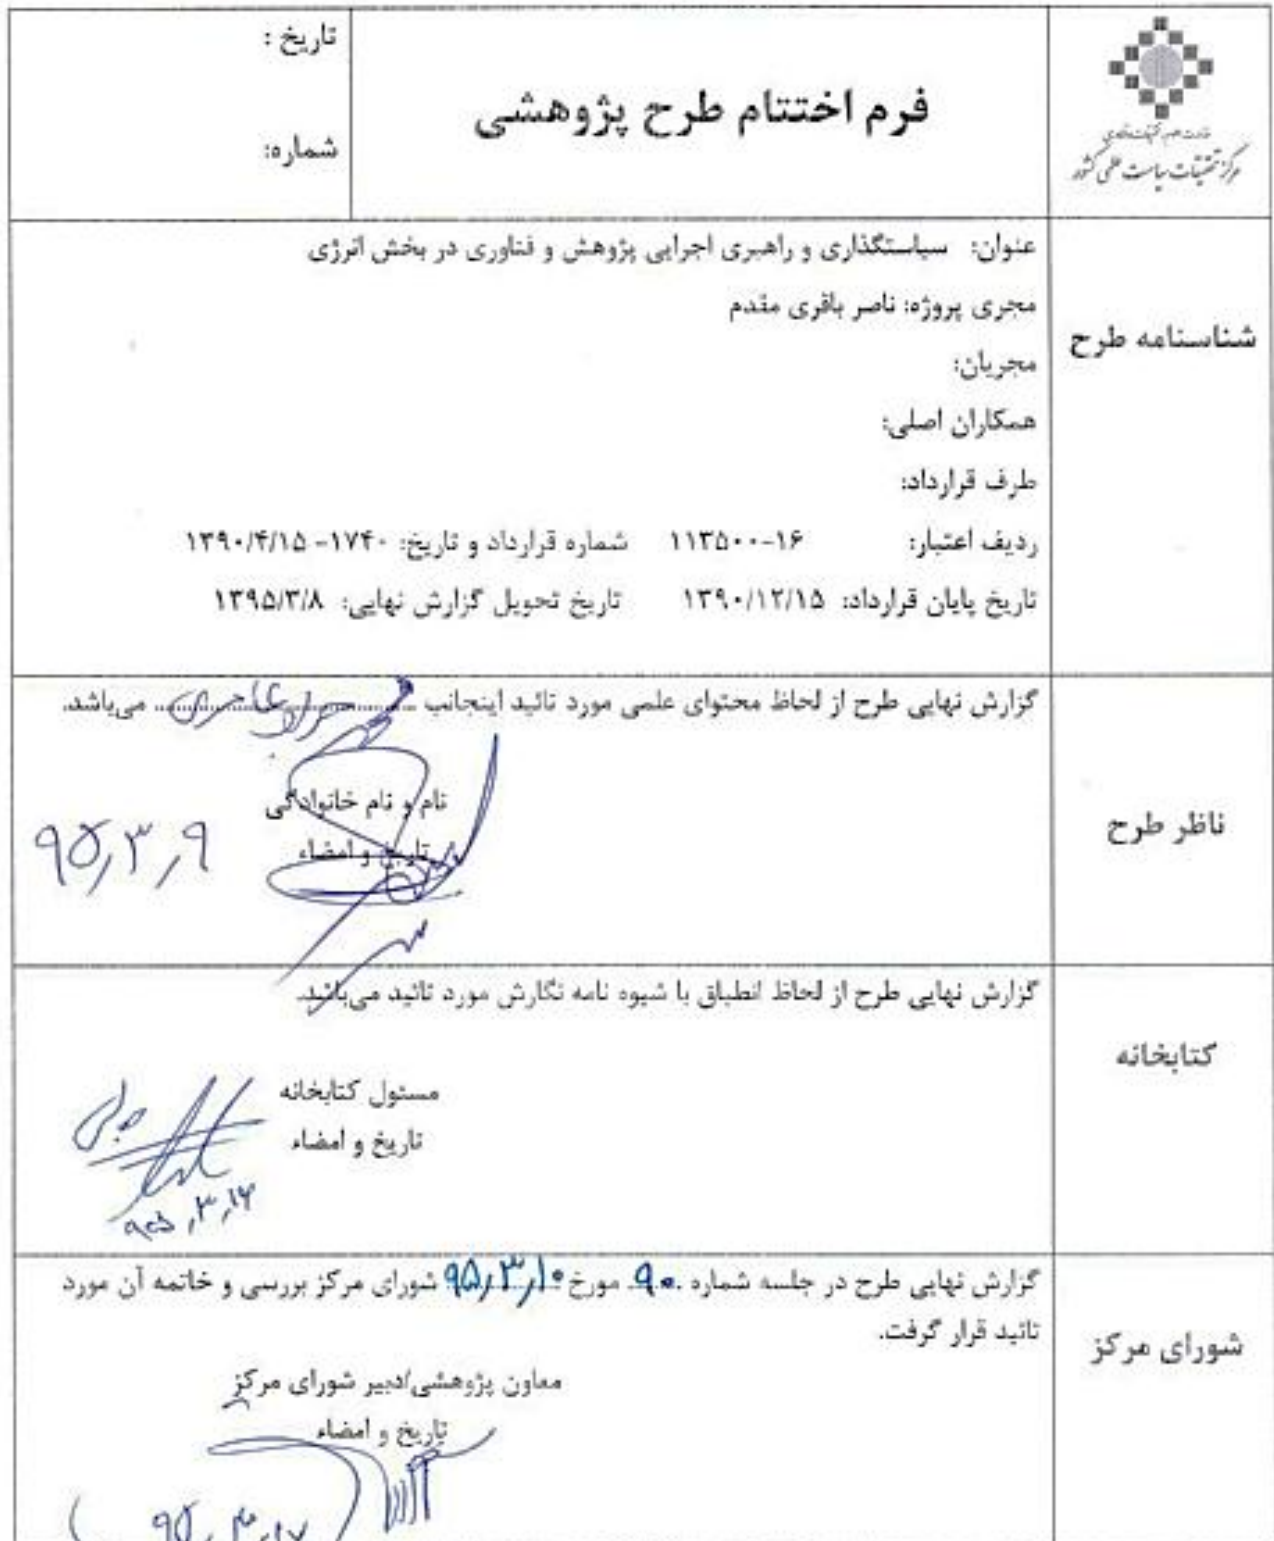 وزارت علوم، تحقیقات و فناوری
مرکز تحقیقات سیاست علمی کشور
فرم اختتام طرح پژوهشی
تاریخ :
شماره:
شناسنامه طرح
عنوان: سیاستگذاری و راهبری اجرایی پژوهش و فناوری در بخش انرژی
مجری پروژه: ناصر باقری مقدم
مجریان:
همکاران اصلی:
طرف قرارداد:
ردیف اعتبار: ۱۱۳۵۰۰-۱۶ شماره قرارداد و تاریخ: ۱۷۴۰- ۱۳۹۰/۴/۱۵
تاریخ پایان قرارداد: ۱۳۹۰/۱۲/۱۵ تاریخ تحویل گزارش نهایی: ۱۳۹۵/۳/۸
ناظر طرح
گزارش نهایی طرح از لحاظ محتوای علمی مورد تائید اینجانب می‌باشد.
نام و نام خانوادگی
تاریخ و امضاء
۹۵,۳,۹
کتابخانه
گزارش نهایی طرح از لحاظ انطباق با شیوه نامه نگارش مورد تائید می‌باشد.
مسئول کتابخانه
تاریخ و امضاء
شورای مرکز
گزارش نهایی طرح در جلسه شماره ۹۰ مورخ ۹۵,۳,۱۰ شورای مرکز بررسی و خاتمه آن مورد
تائید قرار گرفت.
معاون پژوهشی/دبیر شورای مرکز
تاریخ و امضاء
۹۵,۳,۱۷